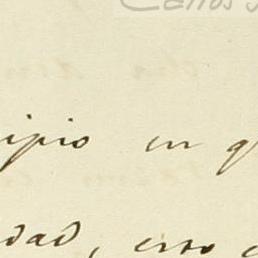 Carlos
ipio en q
dad, esto